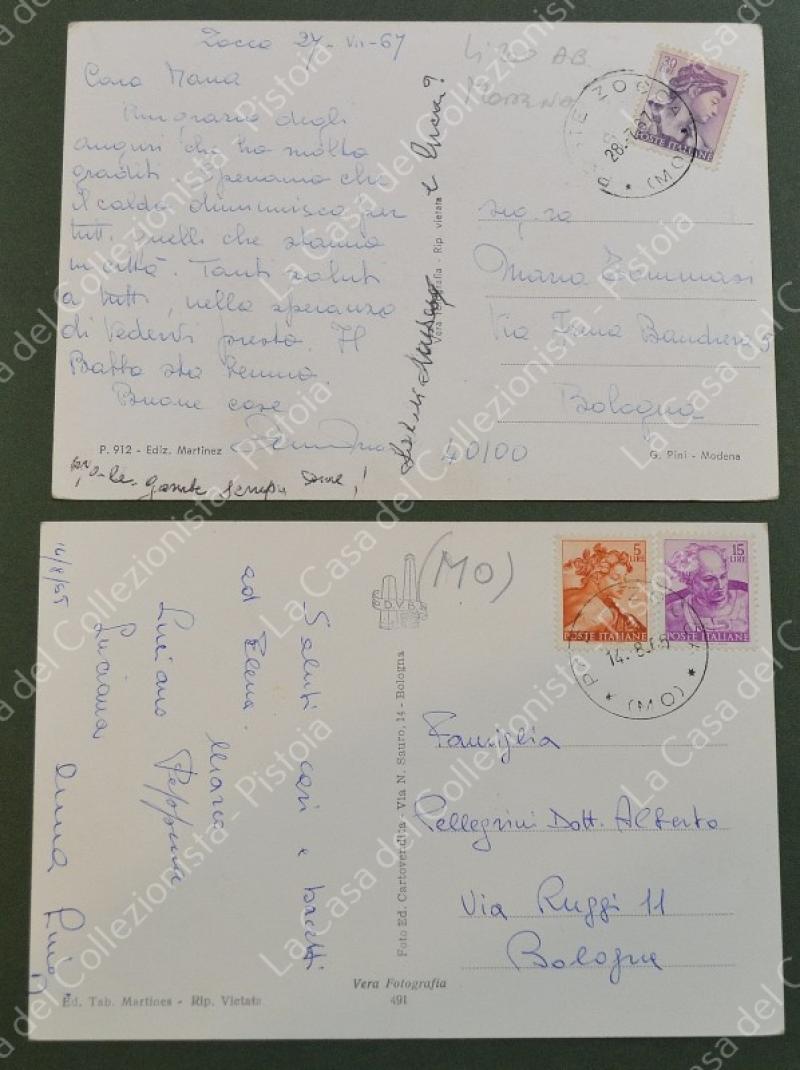 Zocca 27-VII-67
Cara Maria
Ringrazio degli
auguri che ho molto
graditi. Speriamo che
il caldo diminuisca per
tutti quelli che stanno
in città. Tanti saluti
a tutti, nella speranza
di vedervi presto. Il
Babbo sta benino.
Buone cose
P. 912 - Ediz. Martinez
le gambe sempre
Vera Fotografia - Rip. vietata
MODENA
30
POSTE ITALIANE
ZOCCA
28.7.67
(MO)
sig.ra
Maria Tommasi
Via
Bologna
40100
G. Pini - Modena
14/8/65
Saluti cari e bacetti
ad Elena.
Marco
Luciano Peppina
Luciana
Anna
Ed. Tab. Martines - Rip. Vietata
(MO)
D.V.B.
Foto Ed. Cartovendita - Via N. Sauro, 14 - Bologna
Vera Fotografia
491
5 LIRE
POSTE ITALIANE
15 LIRE
POSTE ITALIANE
14.8.65
(MO)
Famiglia
Pellegrini Dott. Alberto
Via Ruggi 11
Bologna
La Casa del Collezionista - Pistoia